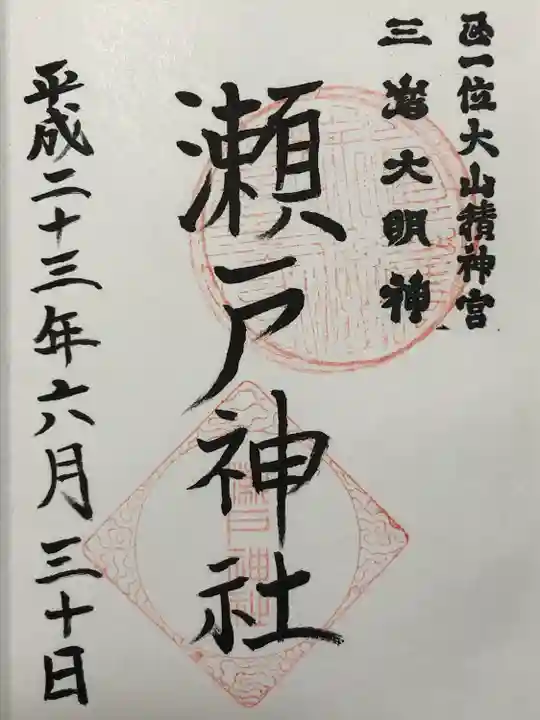 正一位大山積神宮
三嶌大明神
瀬戸神社
平成二十三年六月三十日